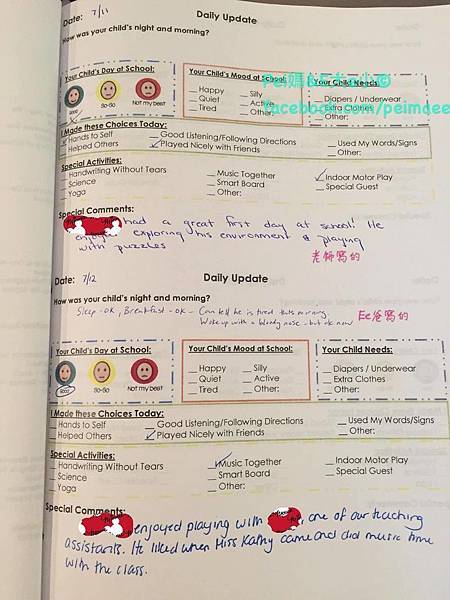 Date: 7/11 Daily Update
How was your child's night and morning?
Pei媽&Ee大小©
Facebook.com/peimaee
Your Child's Day at School: Your Child's Mood at School: Your Child Needs
Good So-So Not my best
__ Happy __ Silly __ Diapers / Underwear
__ Quiet __ Active __ Extra Clothes
__ Tired __ Other: __ Other:
I Made these Choices Today:
Hands to Self __ Good Listening/Following Directions __ Used My Words/Signs
__ Helped Others Played Nicely with Friends __ Other:
Special Activities:
__ Handwriting Without Tears __ Music Together Indoor Motor Play
__ Science __ Smart Board __ Special Guest
__ Yoga __ Other:
Special Comments:
had a great first day at school! He
enjoyed exploring his environment & playing
with puzzles 老師寫的
Date: 7/12 Daily Update
How was your child's night and morning?
Sleep - OK, Breakfast - OK - Can tell he is tired this morning
Woke up with a bloody nose - but ok now Ee爸寫的
Your Child's Day at School: Your Child's Mood at School: Your Child Needs:
Good So-So Not my best
__ Happy __ Silly __ Diapers / Underwear
__ Quiet __ Active __ Extra Clothes
__ Tired __ Other: __ Other:
I Made these Choices Today:
__ Hands to Self __ Good Listening/Following Directions __ Used My Words/Signs
__ Helped Others Played Nicely with Friends __ Other:
Special Activities:
__ Handwriting Without Tears Music Together __ Indoor Motor Play
__ Science __ Smart Board __ Special Guest
__ Yoga __ Other:
Special Comments:
enjoyed playing with , one of our teaching
assistants. He liked when Miss Kathy came and did music time
with the class.